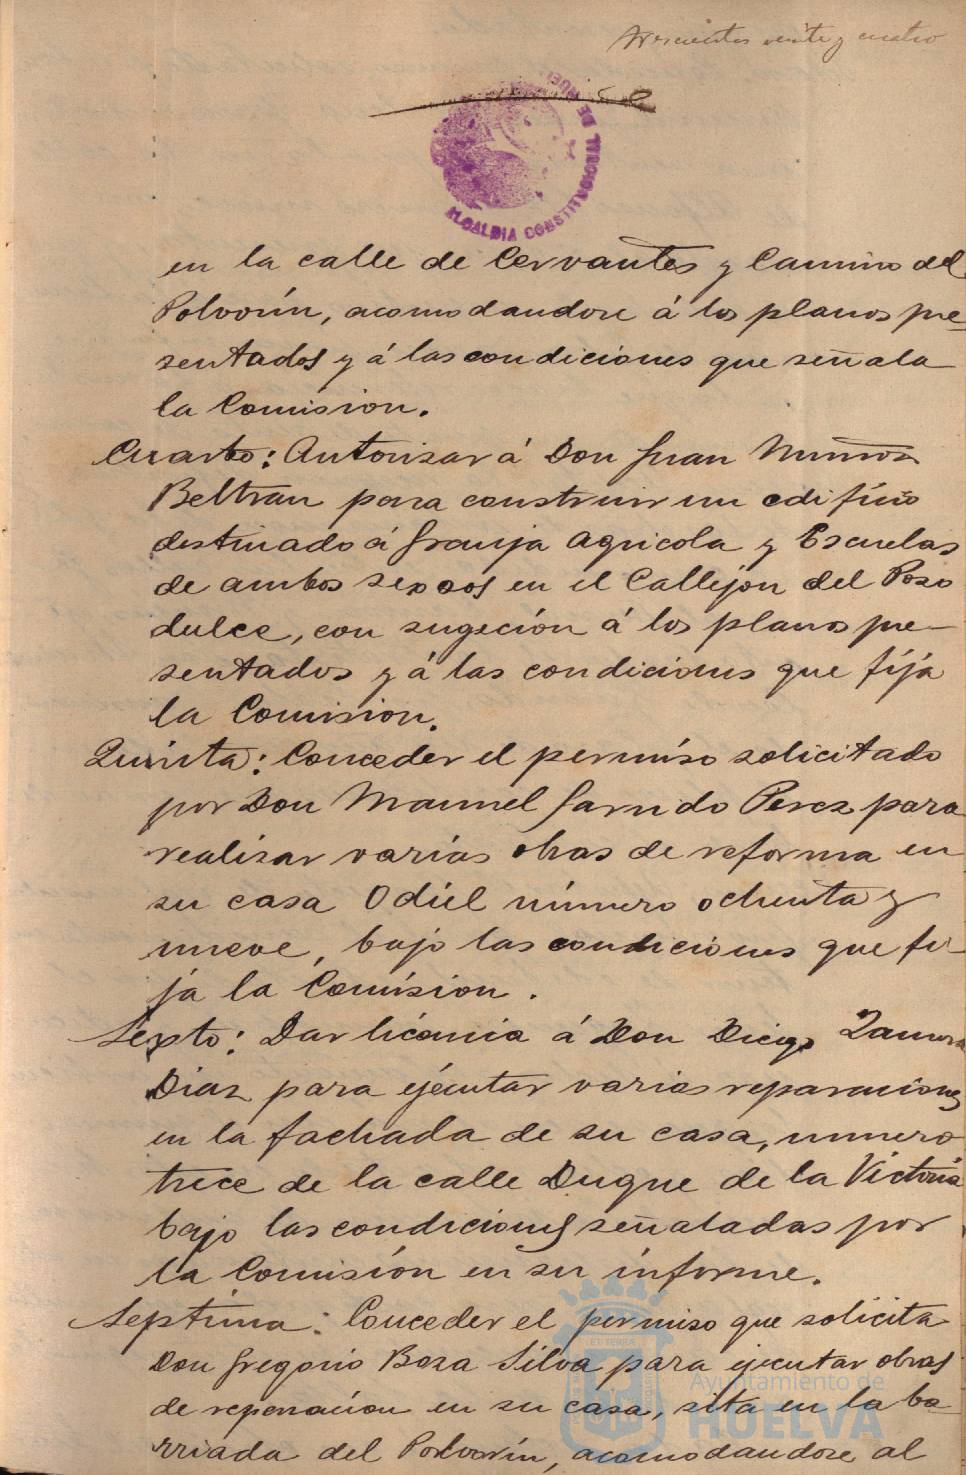 Trescientos veinte y cuatro
ALCALDIA CONSTITUCIONAL DE HUEL
en la calle de Cervantes y Camino del
Polvorín, acomodandose á los planos pre-
sentados y á las condiciones que señala
la Comision.
Cuarto: Autorizar á Don Juan Muñoz
Beltran para construir un edificio
destinado á Granja Agricola y Escuelas
de ambos sexsos en el Callejon del Pozo
dulce, con sugeción á los planos pre-
sentados y á las condiciones que fija
la Comision.
Quinta: Conceder el permiso solicitado
por Don Manuel Garrido Perez para
realizar varias obras de reforma en
su casa Odiel número ochenta y
nueve, bajo las condiciones que fi-
ja la Comision.
Sexto: Dar licencia á Don Diego Zamora
Diaz para ejecutar varias reparaciones
en la fachada de su casa, numero
trece de la calle Duque de la Victoria
bajo las condiciones señaladas por
la Comisión en su informe.
Septima: Conceder el permiso que solicita
Don Gregorio Boza Silva para ejecutar obras
de reperacion en su casa, sita en la ba-
rriada del Polvorín, acomodandose al
Ayuntamiento de
HUELVA